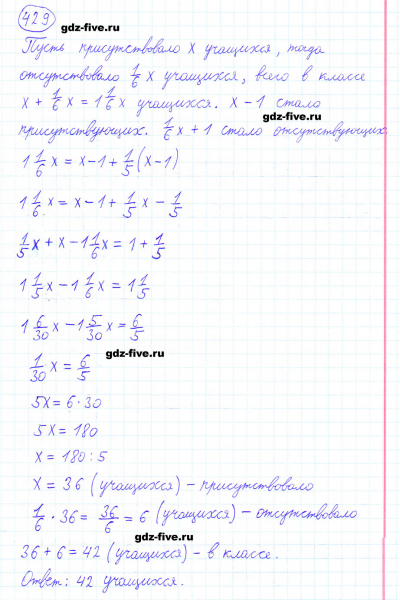 429
gdz-five.ru
Пусть присутствовало x учащихся, тогда
отсутствовало 1/6 x учащихся, всего в классе
x + 1/6 x = 1 1/6 x учащихся. x - 1 стало
присутствующих. 1/6 x + 1 стало отсутствующих.
gdz-five.ru
1 1/6 x = x - 1 + 1/5 (x - 1)
1 1/6 x = x - 1 + 1/5 x - 1/5
gdz-five.ru
1/5 x + x - 1 1/6 x = 1 + 1/5
1 1/5 x - 1 1/6 x = 1 1/5
1 6/30 x - 1 5/30 x = 6/5
gdz-five.ru
1/30 x = 6/5
5x = 6 · 30
5x = 180
x = 180 : 5
x = 36 (учащихся) – присутствовало
gdz-five.ru
1/6 · 36 = 36/6 = 6 (учащихся) – отсутствовало
gdz-five.ru
36 + 6 = 42 (учащихся) – в классе.
Ответ: 42 учащихся.